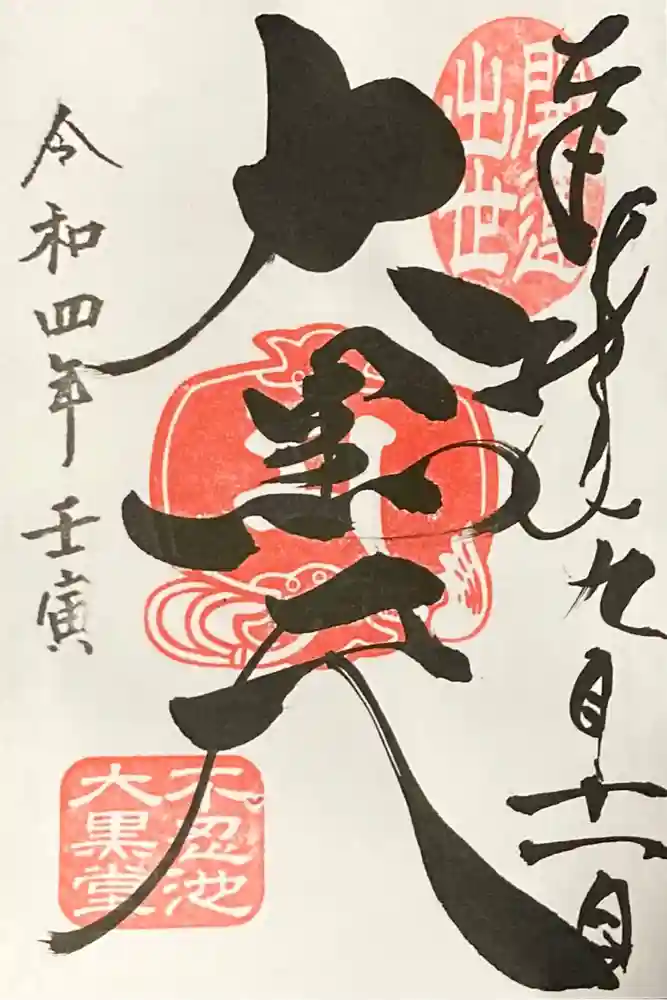 奉拝 九月十一日
開運
出世
大黒天
不忍池
大黒堂
令和四年 壬寅